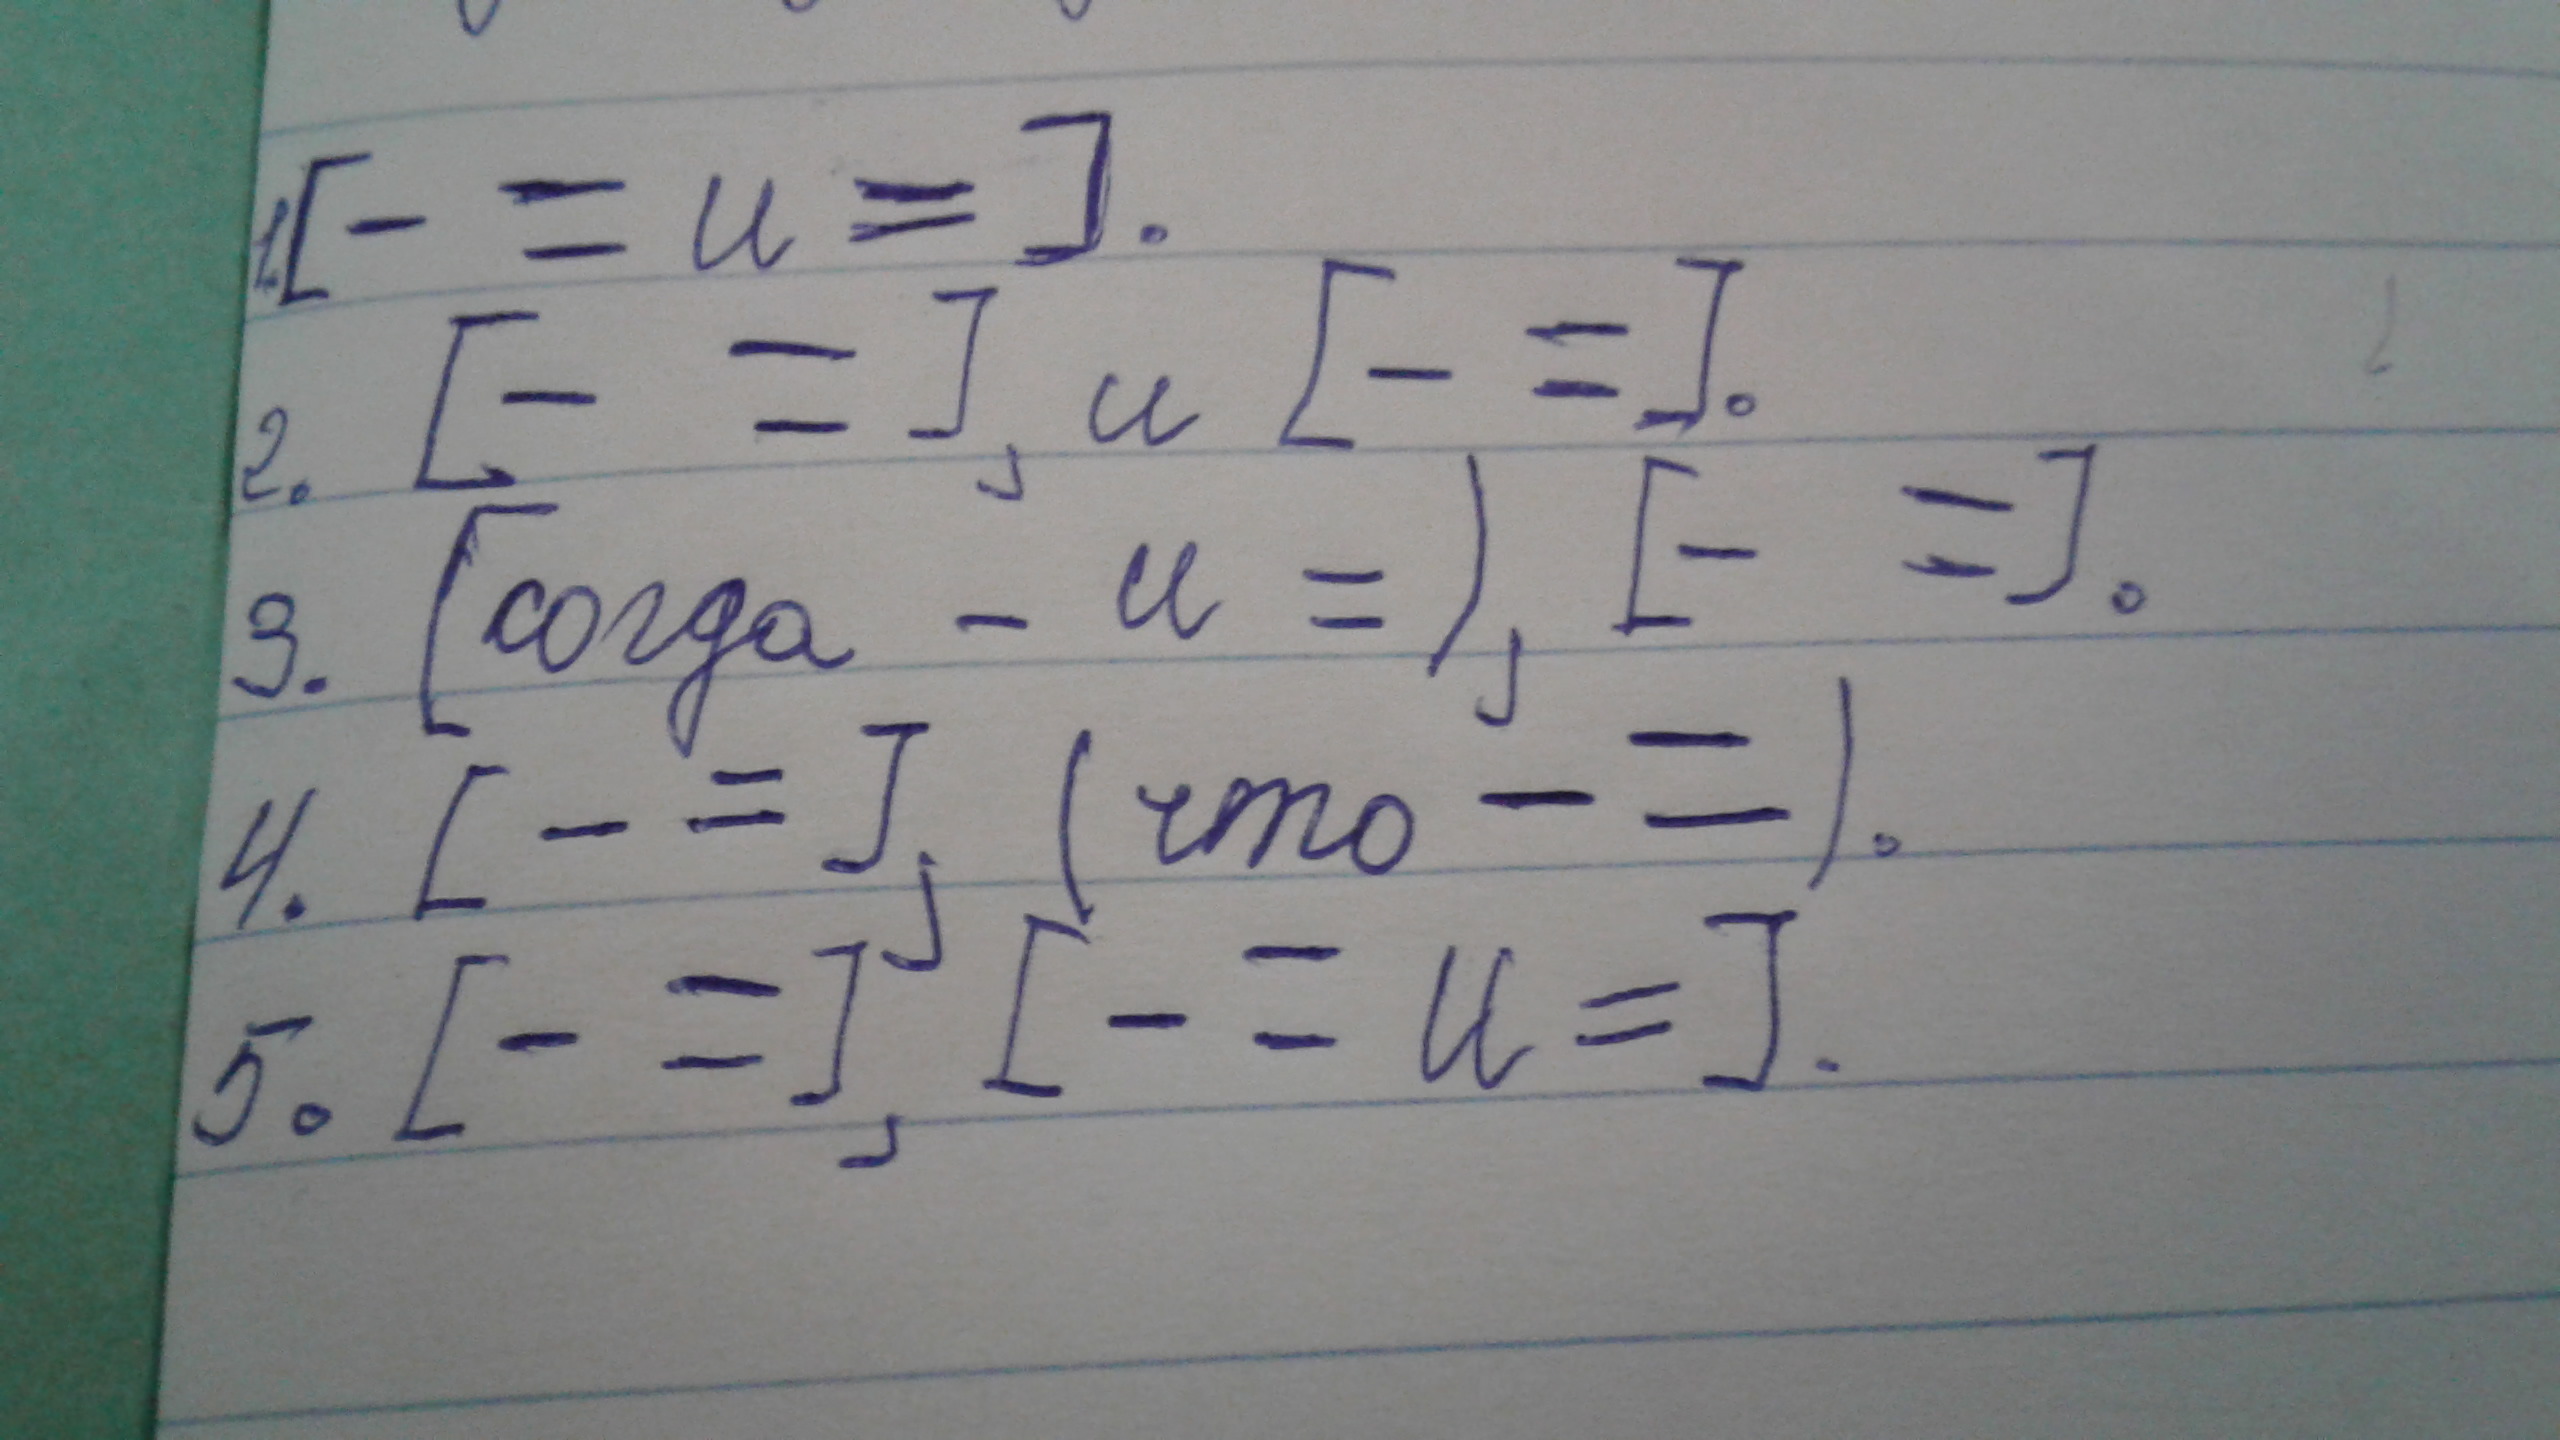 1. [– = и =].
2. [– =], и [– =].
3. [согда – и =), [– =].
4. [– =], (что – =).
5. [– =], [– = и =].